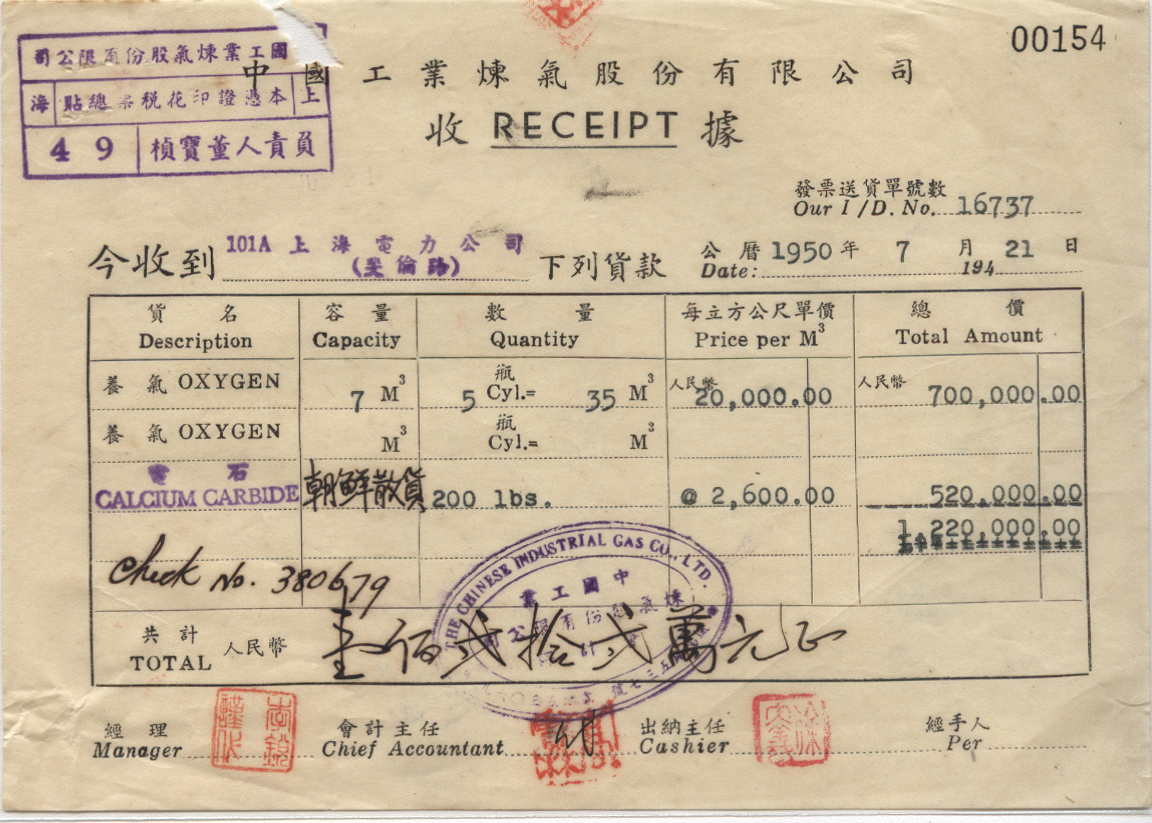 00154
國工業煉氣股份有限公司
上海 本憑證印花稅票總貼
負責人董寶楨 49
中國工業煉氣股份有限公司
收 RECEIPT 據
發票送貨單號數
Our I/D. No. 16737
今收到 101A 上海電力公司 下列貨款
(斐倫路)
公曆 1950 年 7 月 21 日
Date: 194
貨名 容量 數量 每立方公尺單價 總價
Description Capacity Quantity Price per M³ Total Amount
養氣 OXYGEN 7 M³ 5 瓶 Cyl.= 35 M³ 人民幣 20,000.00 人民幣 700,000.00
養氣 OXYGEN M³ 瓶 Cyl.= M³
電石
CALCIUM CARBIDE 朝鮮散貨 200 lbs. @ 2,600.00 520,000.00
1,220,000.00
Check No. 380679
THE CHINESE INDUSTRIAL GAS CO., LTD.
中國工業
煉氣股份有限公司
共計 人民幣 壹佰弍拾弍萬元正
TOTAL
經理 會計主任 出納主任 經手人
Manager Chief Accountant Cashier Per